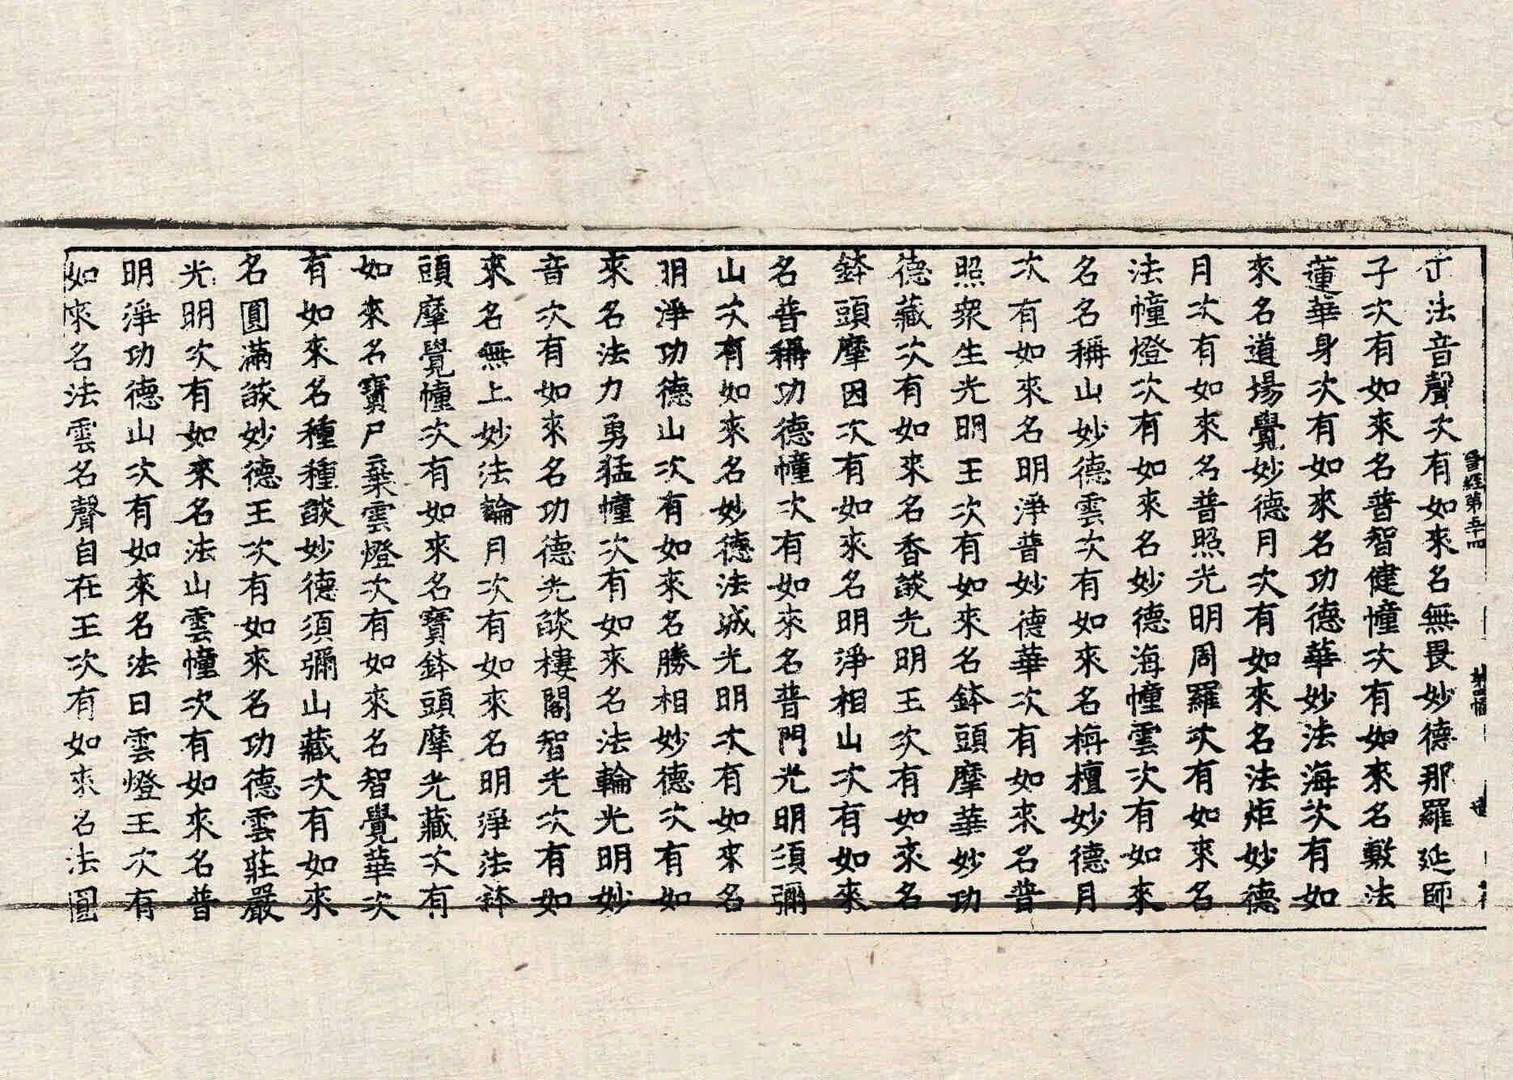 法音聲次有如來名無畏妙德那羅延師
子次有如來名普智健幢次有如來名數法
蓮華身次有如來名功德華妙法海次有如
來名道場覺妙德月次有如來名法炬妙德
月次有如來名普照光明周羅次有如來名
法幢燈次有如來名妙德海幢雲次有如來
名名稱山妙德雲次有如來名栴檀妙德月
次有如來名明淨普妙德華次有如來名普
照衆生光明王次有如來名鉢頭摩華妙功
德藏次有如來名香燄光明王次有如來名
鉢頭摩因次有如來名明淨相山次有如來
名普稱功德幢次有如來名普門光明須彌
山次有如來名妙德法城光明次有如來名
明淨功德山次有如來名勝相妙德次有如
來名法力勇猛幢次有如來名法輪光明妙
音次有如來名功德光燄樓閣智光次有如
來名無上妙法輪月次有如來名明淨法鉢
頭摩覺幢次有如來名寶鉢頭摩光藏次有
如來名寶尸棄雲燈次有如來名智覺華次
有如來名種種燄妙德須彌山藏次有如來
名圓滿燄妙德王次有如來名功德雲莊嚴
光明次有如來名法山雲幢次有如來名普
明淨功德山次有如來名法日雲燈王次有
如來名法雲名聲自在王次有如來名法圓